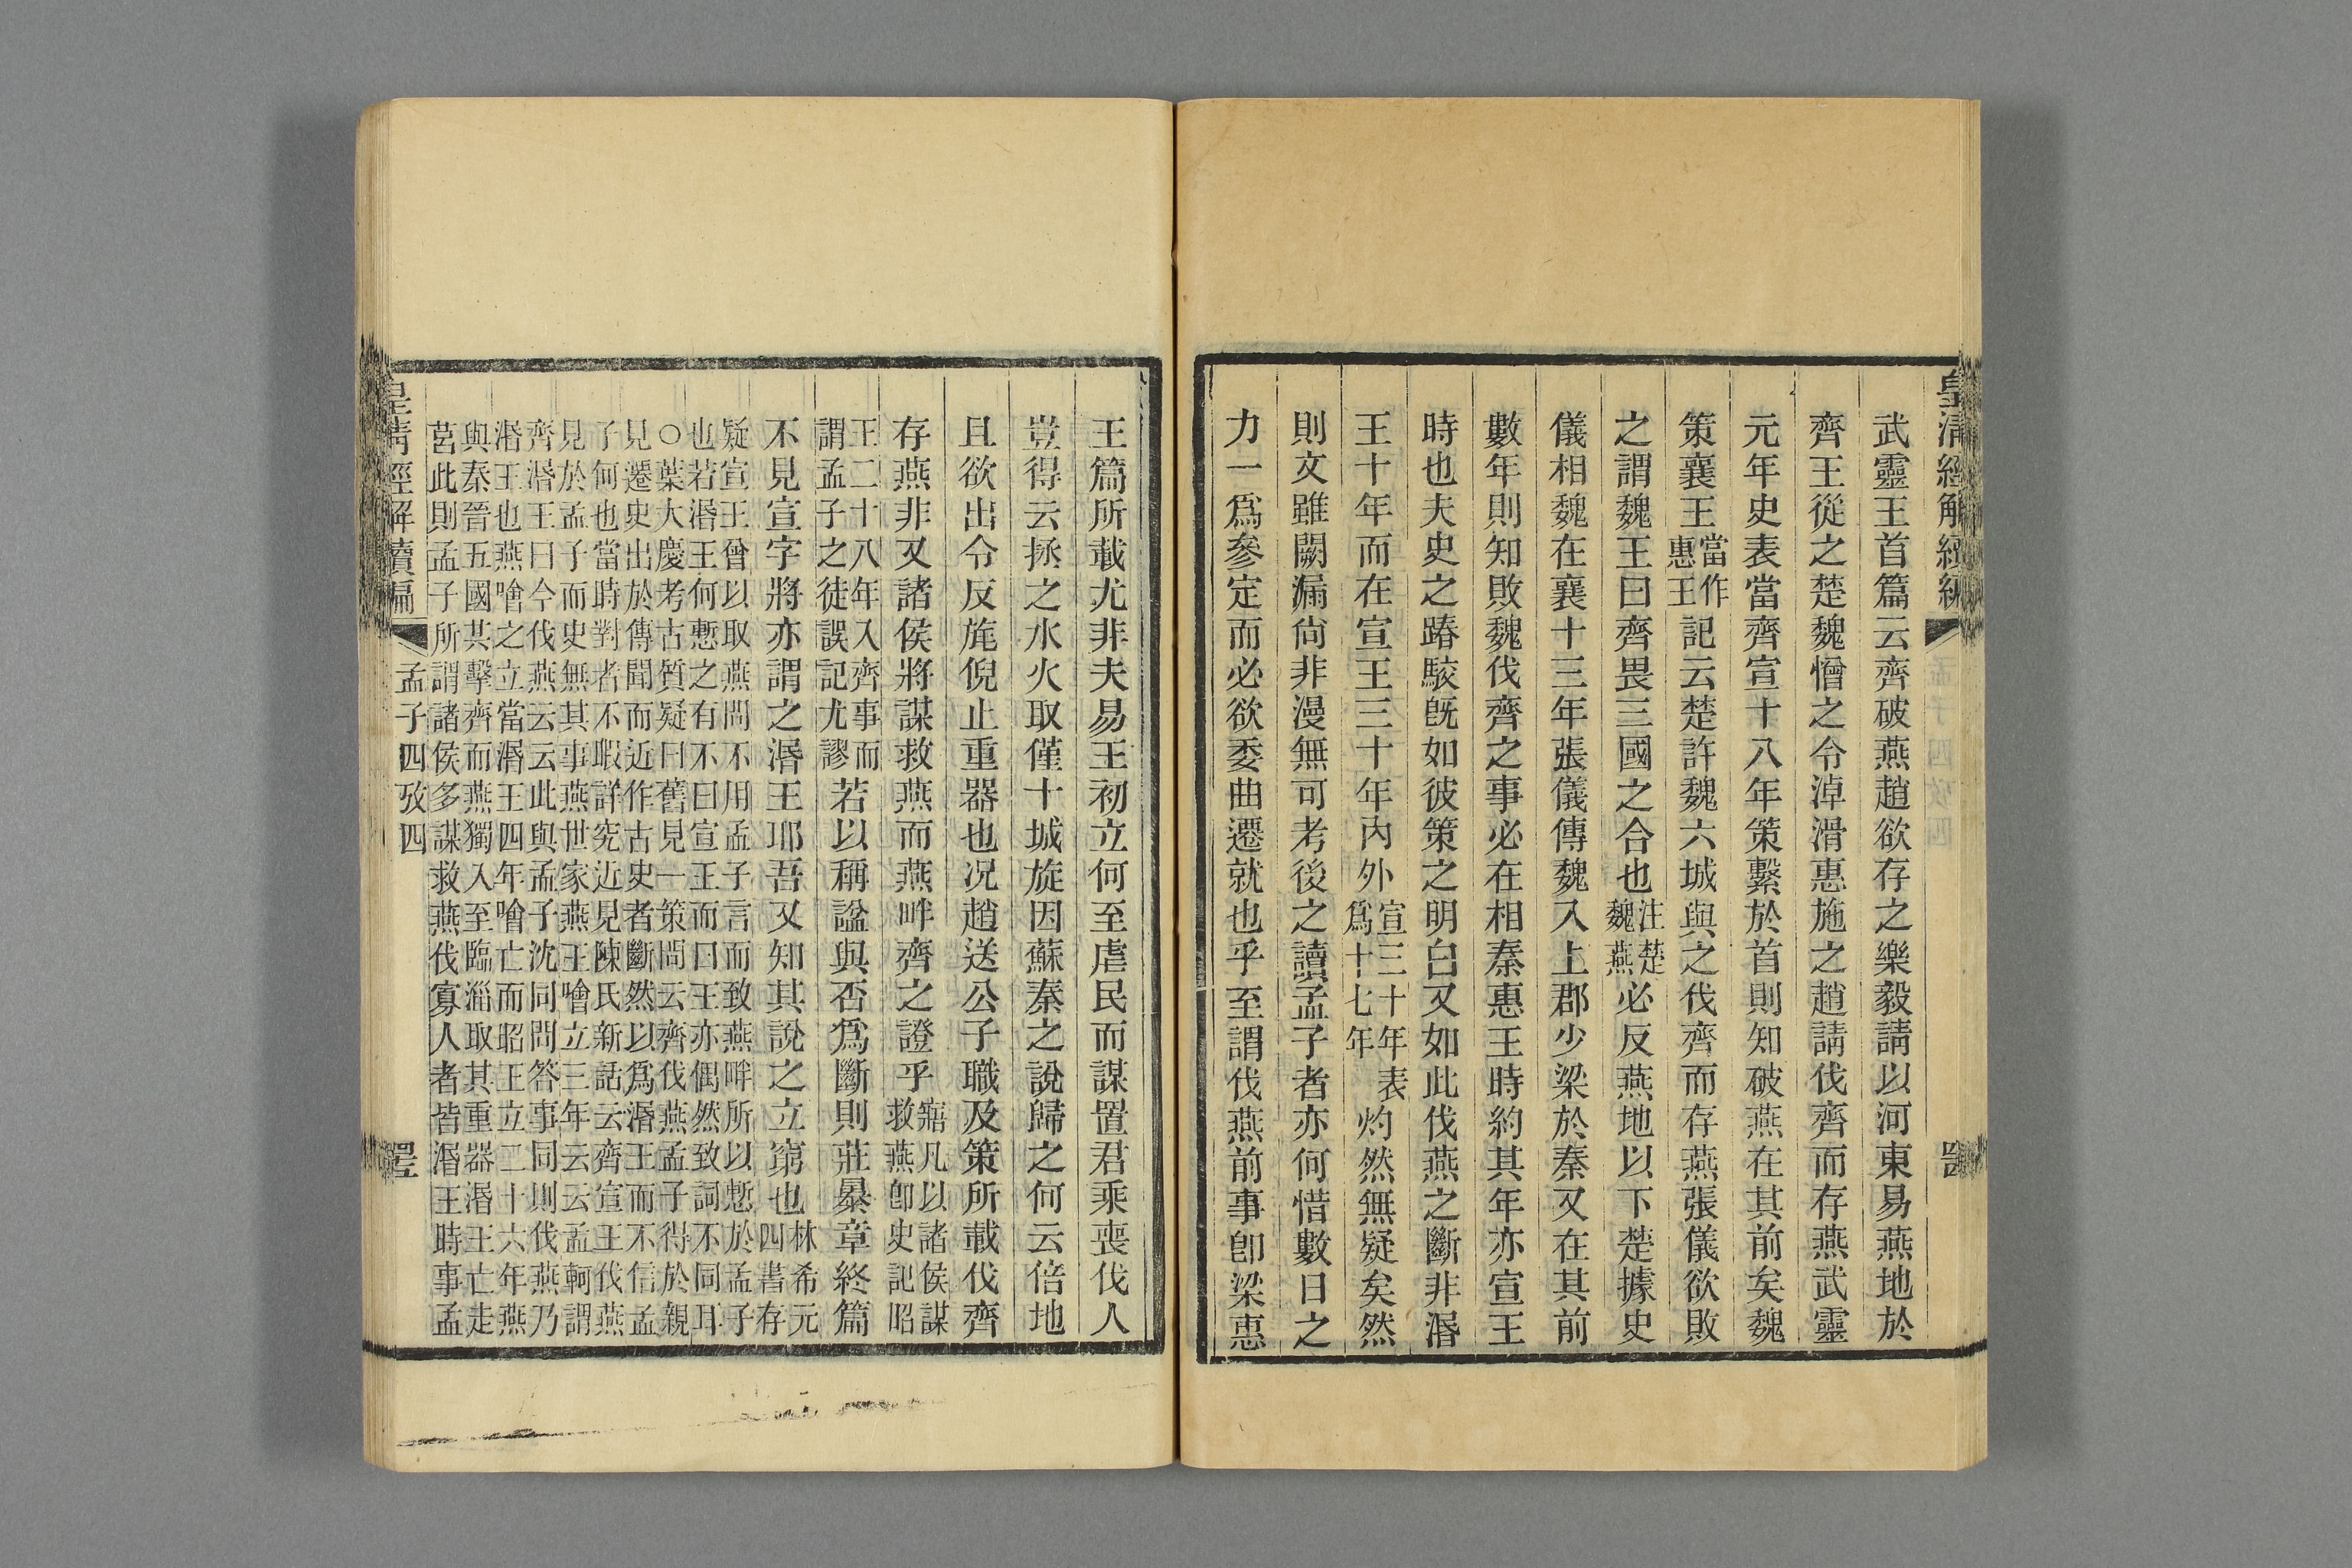 武靈王首篇云齊破燕趙欲存之樂毅請以河東易燕地於
齊王從之楚魏憎之令淖滑惠施之趙請伐齊而存燕武靈
元年史表當齊宣十八年策繫於首則知破燕在其前矣魏
策襄王當作惠王記云楚許魏六城與之伐齊而存燕張儀欲敗
之謂魏王曰齊畏三國之合也注楚魏燕必反燕地以下楚據史
儀相魏在襄十三年張儀傳魏入上郡少梁於秦又在其前
數年則知敗魏伐齊之事必在相秦惠王時約其年亦宣王
時也夫史之踳駮旣如彼策之明白又如此伐燕之斷非湣
王十年而在宣王三十年內外宣三十年表爲十七年灼然無疑矣然
則文雖闕漏尙非漫無可考後之讀孟子者亦何惜數日之
力一爲參定而必欲委曲遷就也乎至謂伐燕前事卽梁惠
皇淸經解續編
王篇所載尤非夫易王初立何至虐民而謀置君乘喪伐人
豈得云拯之水火取僅十城旋因蘇秦之說歸之何云倍地
且欲出令反旄倪止重器也況趙送公子職及策所載伐齊
存燕非又諸侯將謀救燕而燕畔齊之證乎寤凡以諸侯謀救燕卽史記昭
王二十八年入齊事而謂孟子之徒誤記尤謬若以稱諡與否爲斷則莊暴章終篇
不見宣字將亦謂之湣王耶吾又知其說之立窮也林希元四書存
疑宣王曾以取燕問不用孟子言而致燕畔所以慙於孟子
也若湣王何慙之有不曰宣王而曰王亦偶然致詞不同耳
○葉大慶考古質疑曰舊見一策問云齊伐燕孟子得於親
見遷史出於傳聞而近作古史者斷然以爲湣王而不信孟
子何也當時對者不暇詳究近見陳氏新話云齊宣王伐燕
見於孟子而史無其事燕世家燕王噲立三年云云孟軻謂
齊湣王曰今伐燕云云此與孟子沈同問答事同則伐燕乃
湣王也燕噲之立當湣王四年噲亡而昭王立二十六年燕
與秦晉五國其擊齊而燕獨入至臨淄取其重器湣王亡走
莒此則孟子所謂諸侯多謀救燕伐寡人者皆湣王時事孟
皇淸經解續編
孟子四攷四